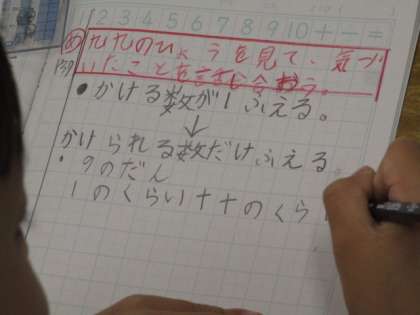 1 2 3 4 5 6 7 8 9 10 + - =
め 九九のひょうを見て、気づ
いたことを言い合おう。
●かける数が1ふえる。
↓
かけられる数だけふえる。
・9のだん
1のくらい++のくら